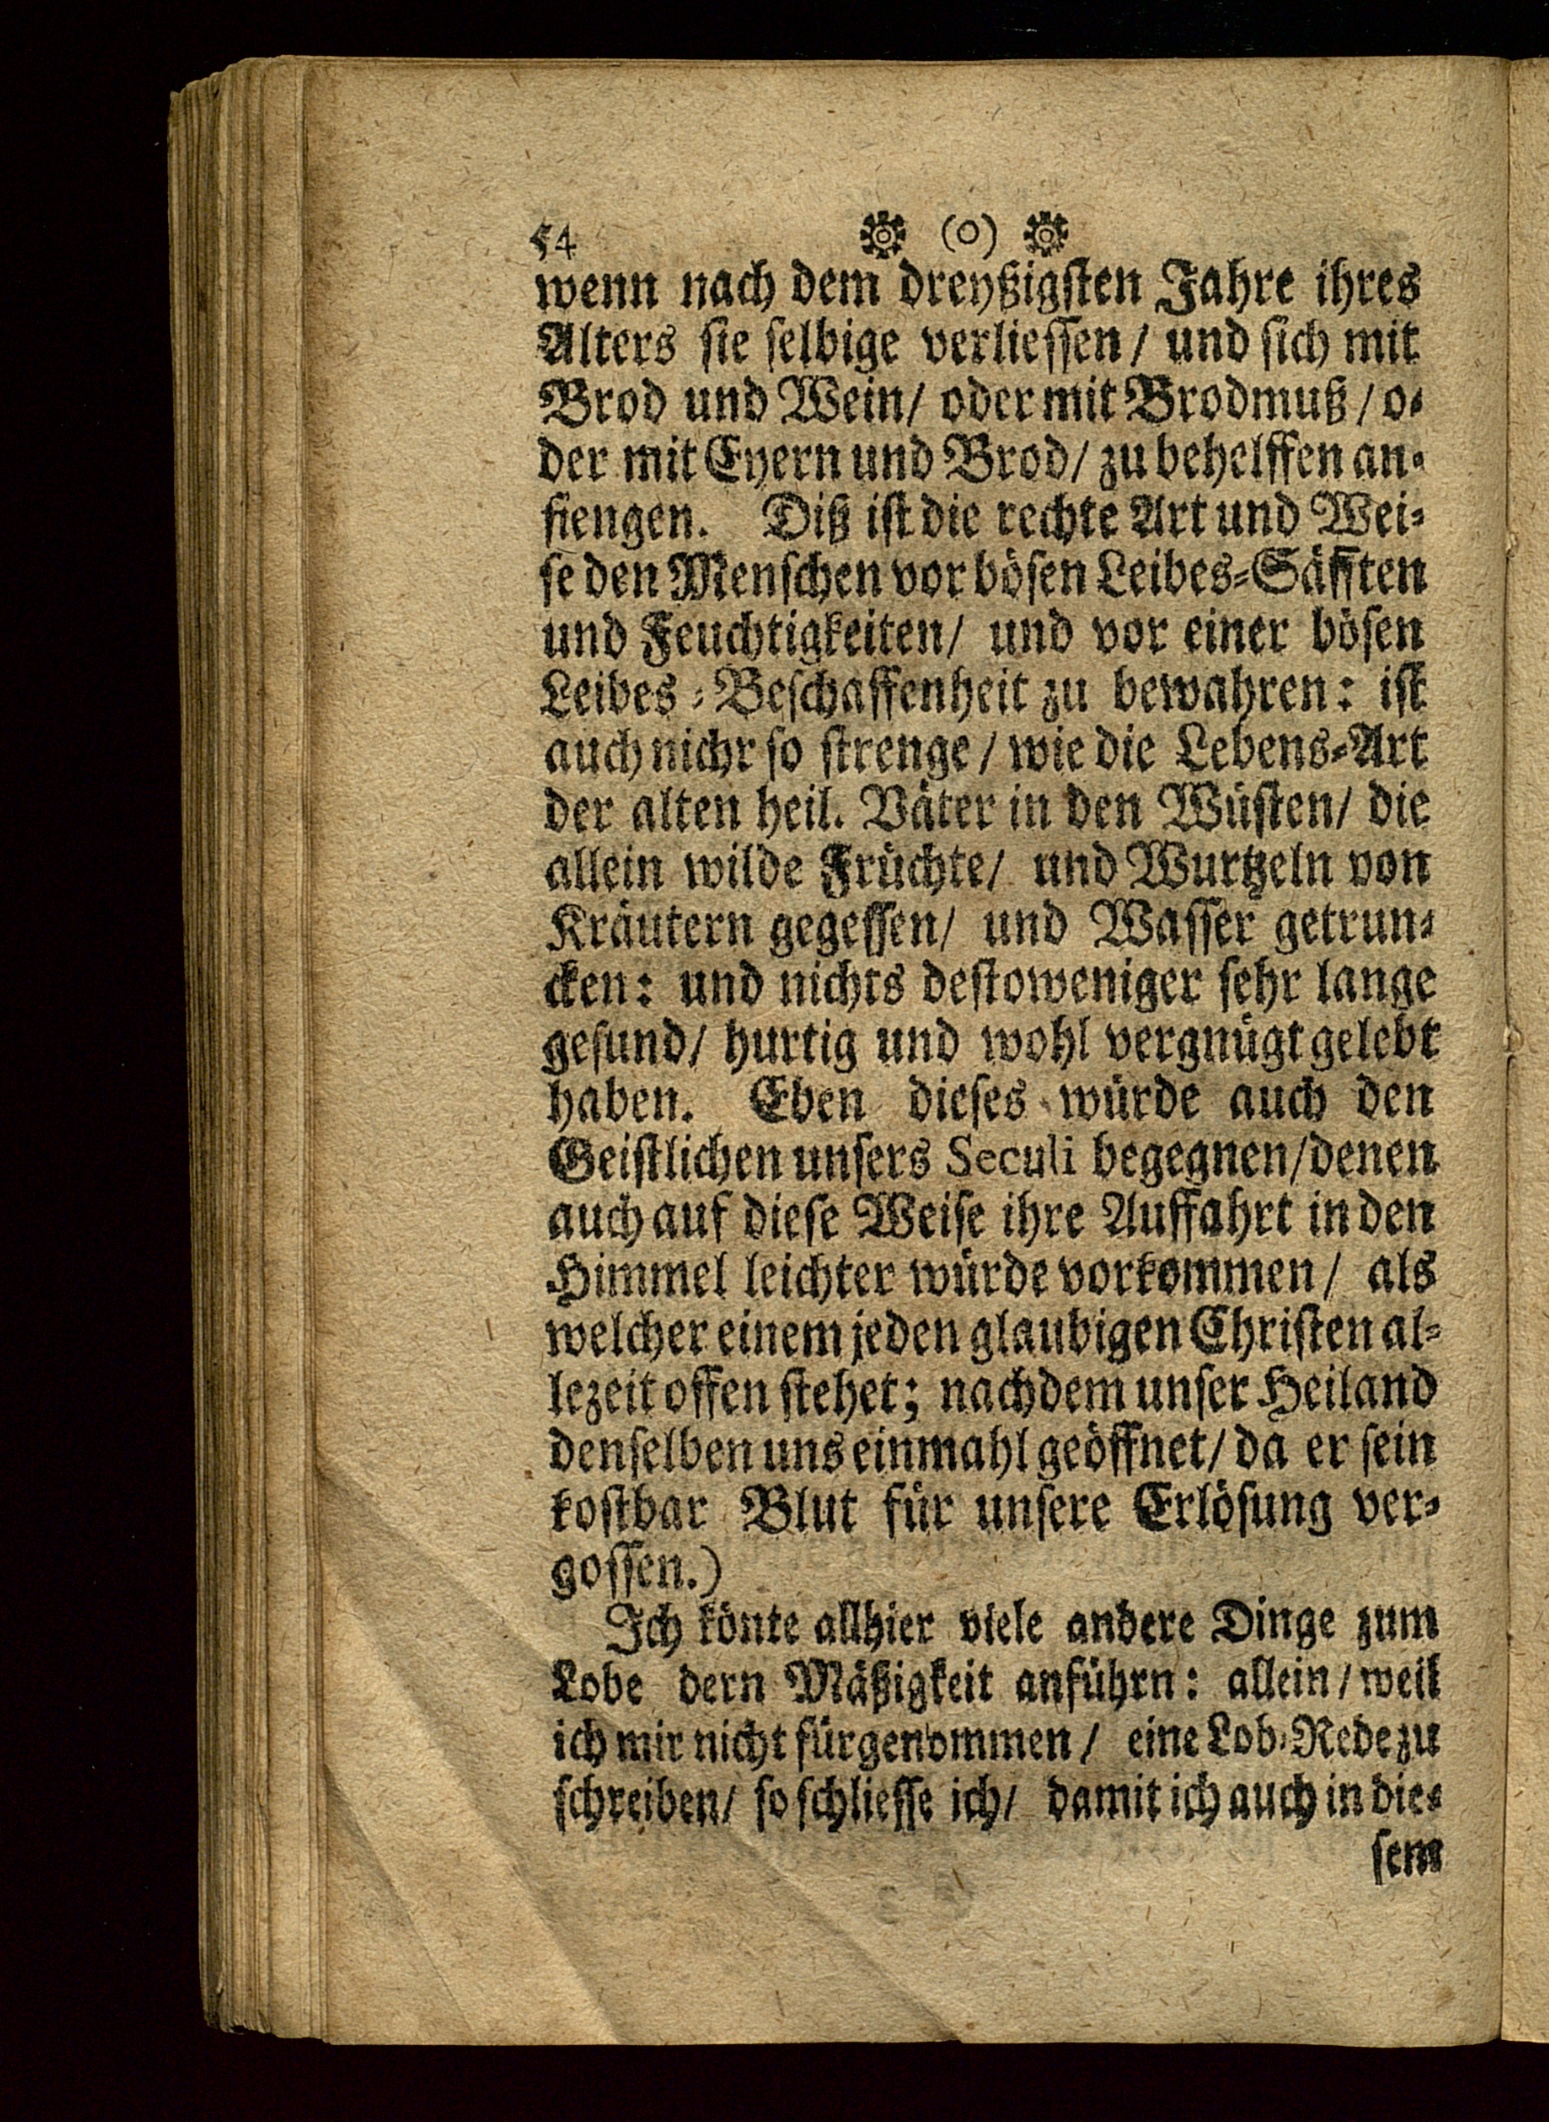 54 (o)
wenn nach dem dreyßigsten Jahre ihres
Alters sie selbige verliessen / und sich mit
Brod und Wein / oder mit Brodmuß / o-
der mit Eyern und Brod / zu behelffen an-
fiengen. Diß ist die rechte Art und Wei-
se den Menschen vor bösen Leibes-Säfften
und Feuchtigkeiten / und vor einer bösen
Leibes-Beschaffenheit zu bewahren: ist
auch nichr so strenge / wie die Lebens-Art
der alten heil. Väter in den Wüsten / die
allein wilde Früchte / und Wurtzeln von
Kräutern gegessen / und Wasser getrun-
cken: und nichts destoweniger sehr lange
gesund / hurtig und wohl vergnügt gelebt
haben. Eben dieses würde auch den
Geistlichen unsers Seculi begegnen / denen
auch auf diese Weise ihre Auffahrt in den
Himmel leichter würde vorkommen / als
welcher einem jeden glaubigen Christen al-
lezeit offen stehet; nachdem unser Heiland
denselben uns einmahl geöffnet / da er sein
kostbar Blut für unsere Erlösung ver-
gossen.)
Ich könte allhier viele andere Dinge zum
Lobe dern Mäßigkeit anführn: allein / weil
ich mir nicht fürgenommen / eine Lob-Rede zu
schreiben / so schliesse ich / damit ich auch in die-
sem